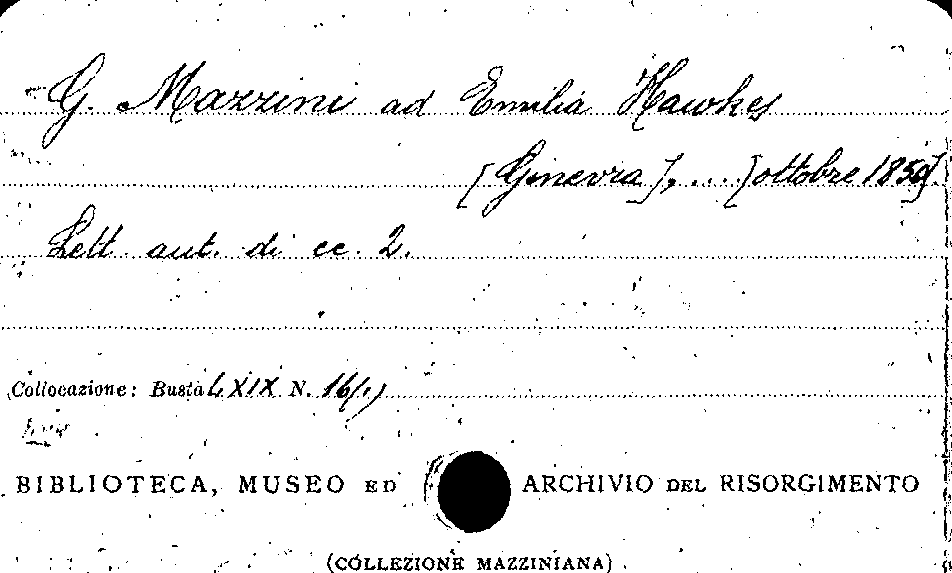 G. Mazzini ad Emilia Hawkes
[Ginevra], ... [ottobre 1850].
Lett. aut. di cc. 2.
Collocazione: Busta LXIX N. 16/1)
BIBLIOTECA, MUSEO ED ARCHIVIO DEL RISORGIMENTO
(COLLEZIONE MAZZINIANA)